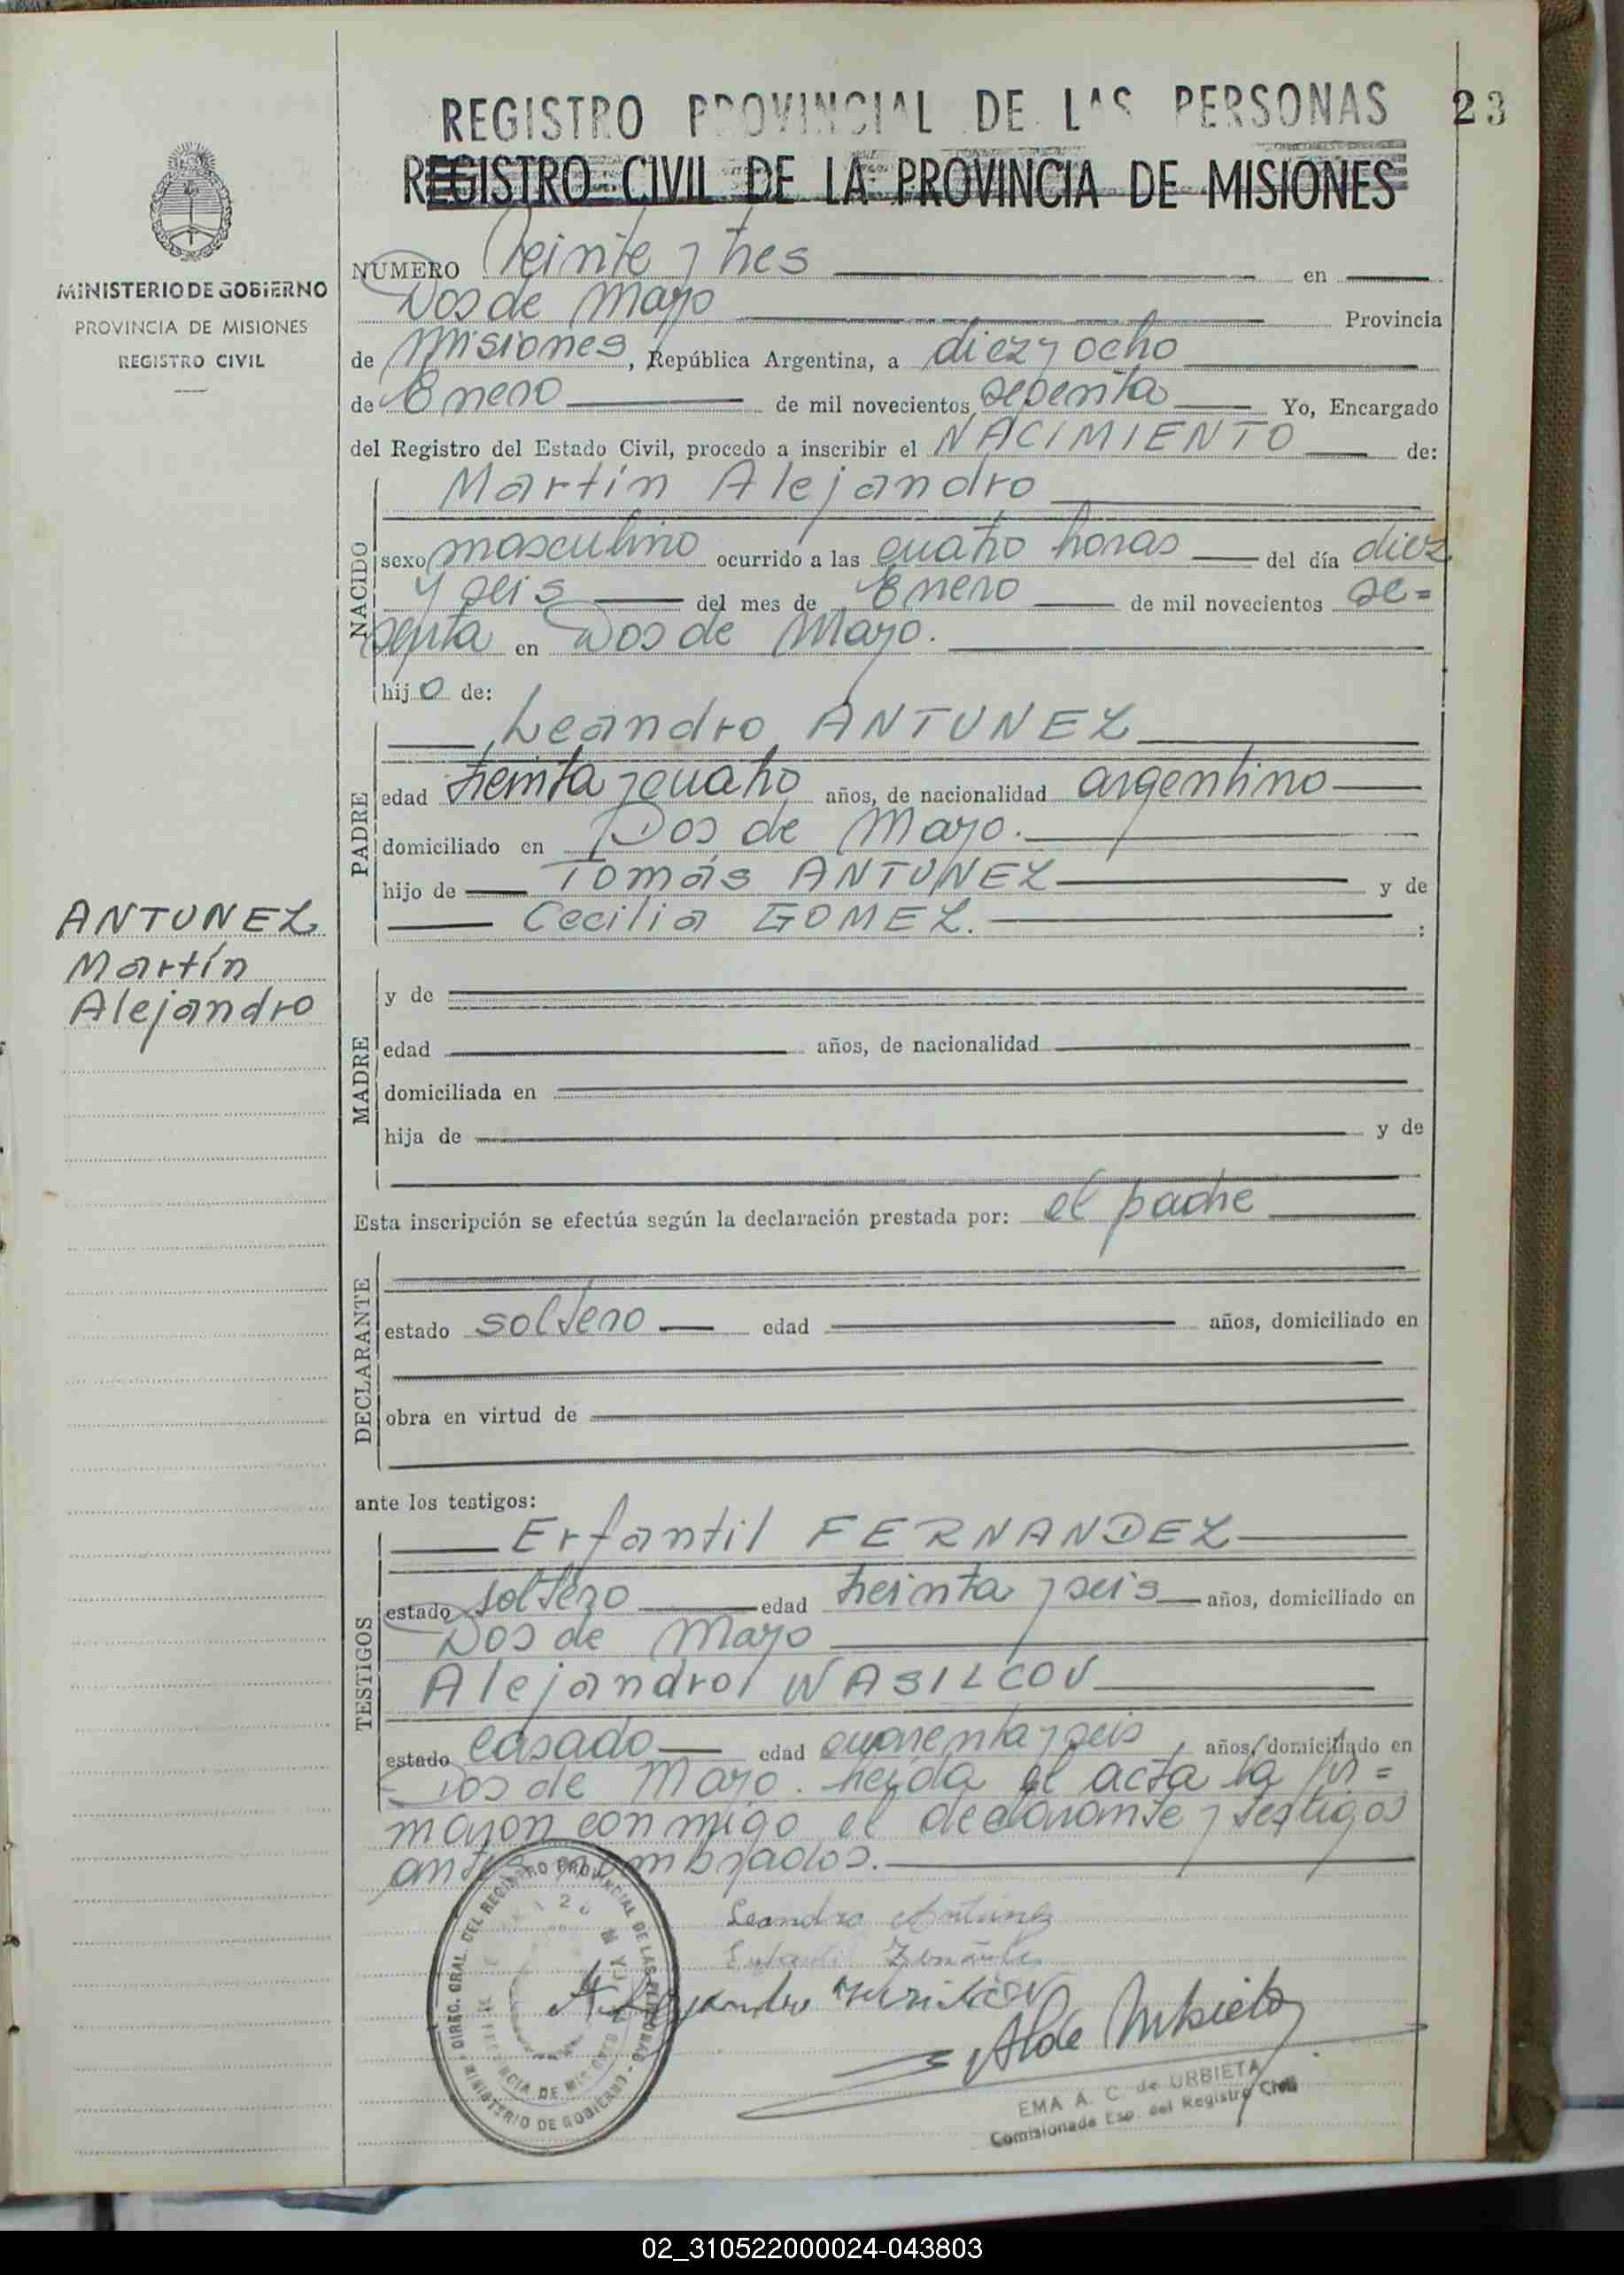 REGISTRO PROVINCIAL DE LAS PERSONAS
23
REGISTRO CIVIL DE LA PROVINCIA DE MISIONES
MINISTERIO DE GOBIERNO
PROVINCIA DE MISIONES
REGISTRO CIVIL
ANTUNEZ
Martín
Alejandro
NUMERO Veinte y tres en
Dos de Mayo Provincia
de Misiones, República Argentina, a diez y ocho
de Enero de mil novecientos setenta Yo, Encargado
del Registro del Estado Civil, procedo a inscribir el NACIMIENTO de:
NACIDO
Martín Alejandro
sexo masculino ocurrido a las cuatro horas del día diez
y seis del mes de Enero de mil novecientos se=
tenta en Dos de Mayo.
hijo de:
PADRE
Leandro ANTUNEZ
edad treinta y cuatro años, de nacionalidad argentino
domiciliado en Dos de Mayo.
hijo de Tomás ANTUNEZ y de
Cecilia GOMEZ. :
MADRE
y de
edad años, de nacionalidad
domiciliada en
hija de y de
Esta inscripción se efectúa según la declaración prestada por: el padre
DECLARANTE
estado soltero edad años, domiciliado en
obra en virtud de
ante los testigos:
TESTIGOS
Erfantil FERNANDEZ
estado soltero edad treinta y seis años, domiciliado en
Dos de Mayo
Alejandro WASILCOV
estado casado edad cuarenta y seis años, domiciliado en
Dos de Mayo. Leída el acta la fir=
maron conmigo el declarante y testigos
antes nombrados.
Leandro Antunez
Alejandro
EMA A. C. de URBIETA
Comisionada Esp. del Registro Civil
DIREC. GRAL. DEL REGISTRO PROVINCIAL DE LAS PERSONAS
MINISTERIO DE GOBIERNO
02_310522000024-043803